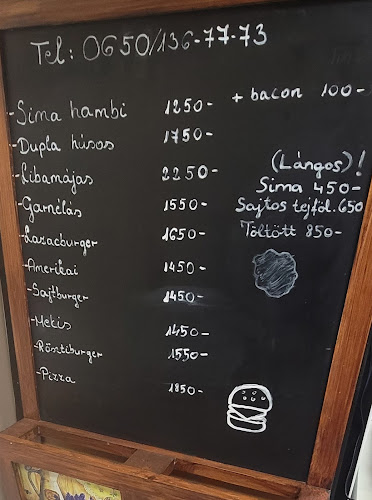 Tel: 0650/136-77-73
+ bacon 100-
-Sima hambi 1250-
-Dupla húsos 1750-
-Libamájas 2250-
-Garnélás 1550-
-Lazacburger 1650-
-Amerikai 1450-
-Sajtburger 1450-
-Mekis 1450-
-Röstiburger 1550-
-Pizza 1850-
(Lángos)!
Sima 450-
Sajtos tejföl. 650
Töltött 850-